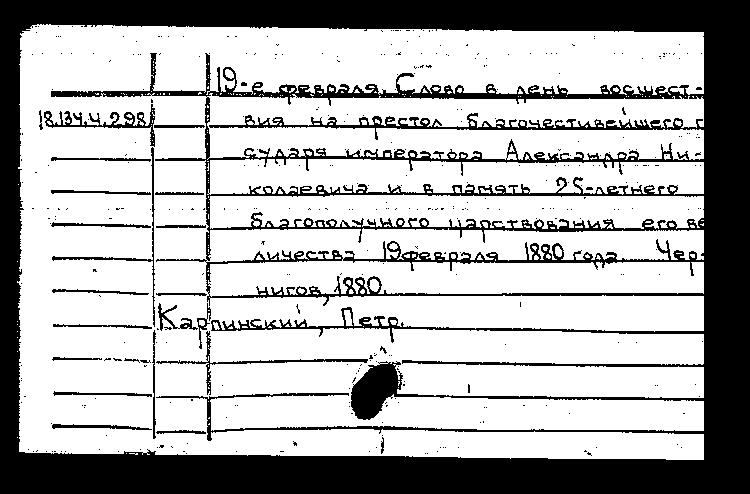 19-е февраля. Слово в день восшест-
18.134.4.298
вия на престол благочестивейшего г
сударя императора Александра Ни-
колаевича и в память 25-летнего
благополучного царствования его ве
личества 19 февраля 1880 года. Чер-
нигов, 1880.
Карпинский, Петр.